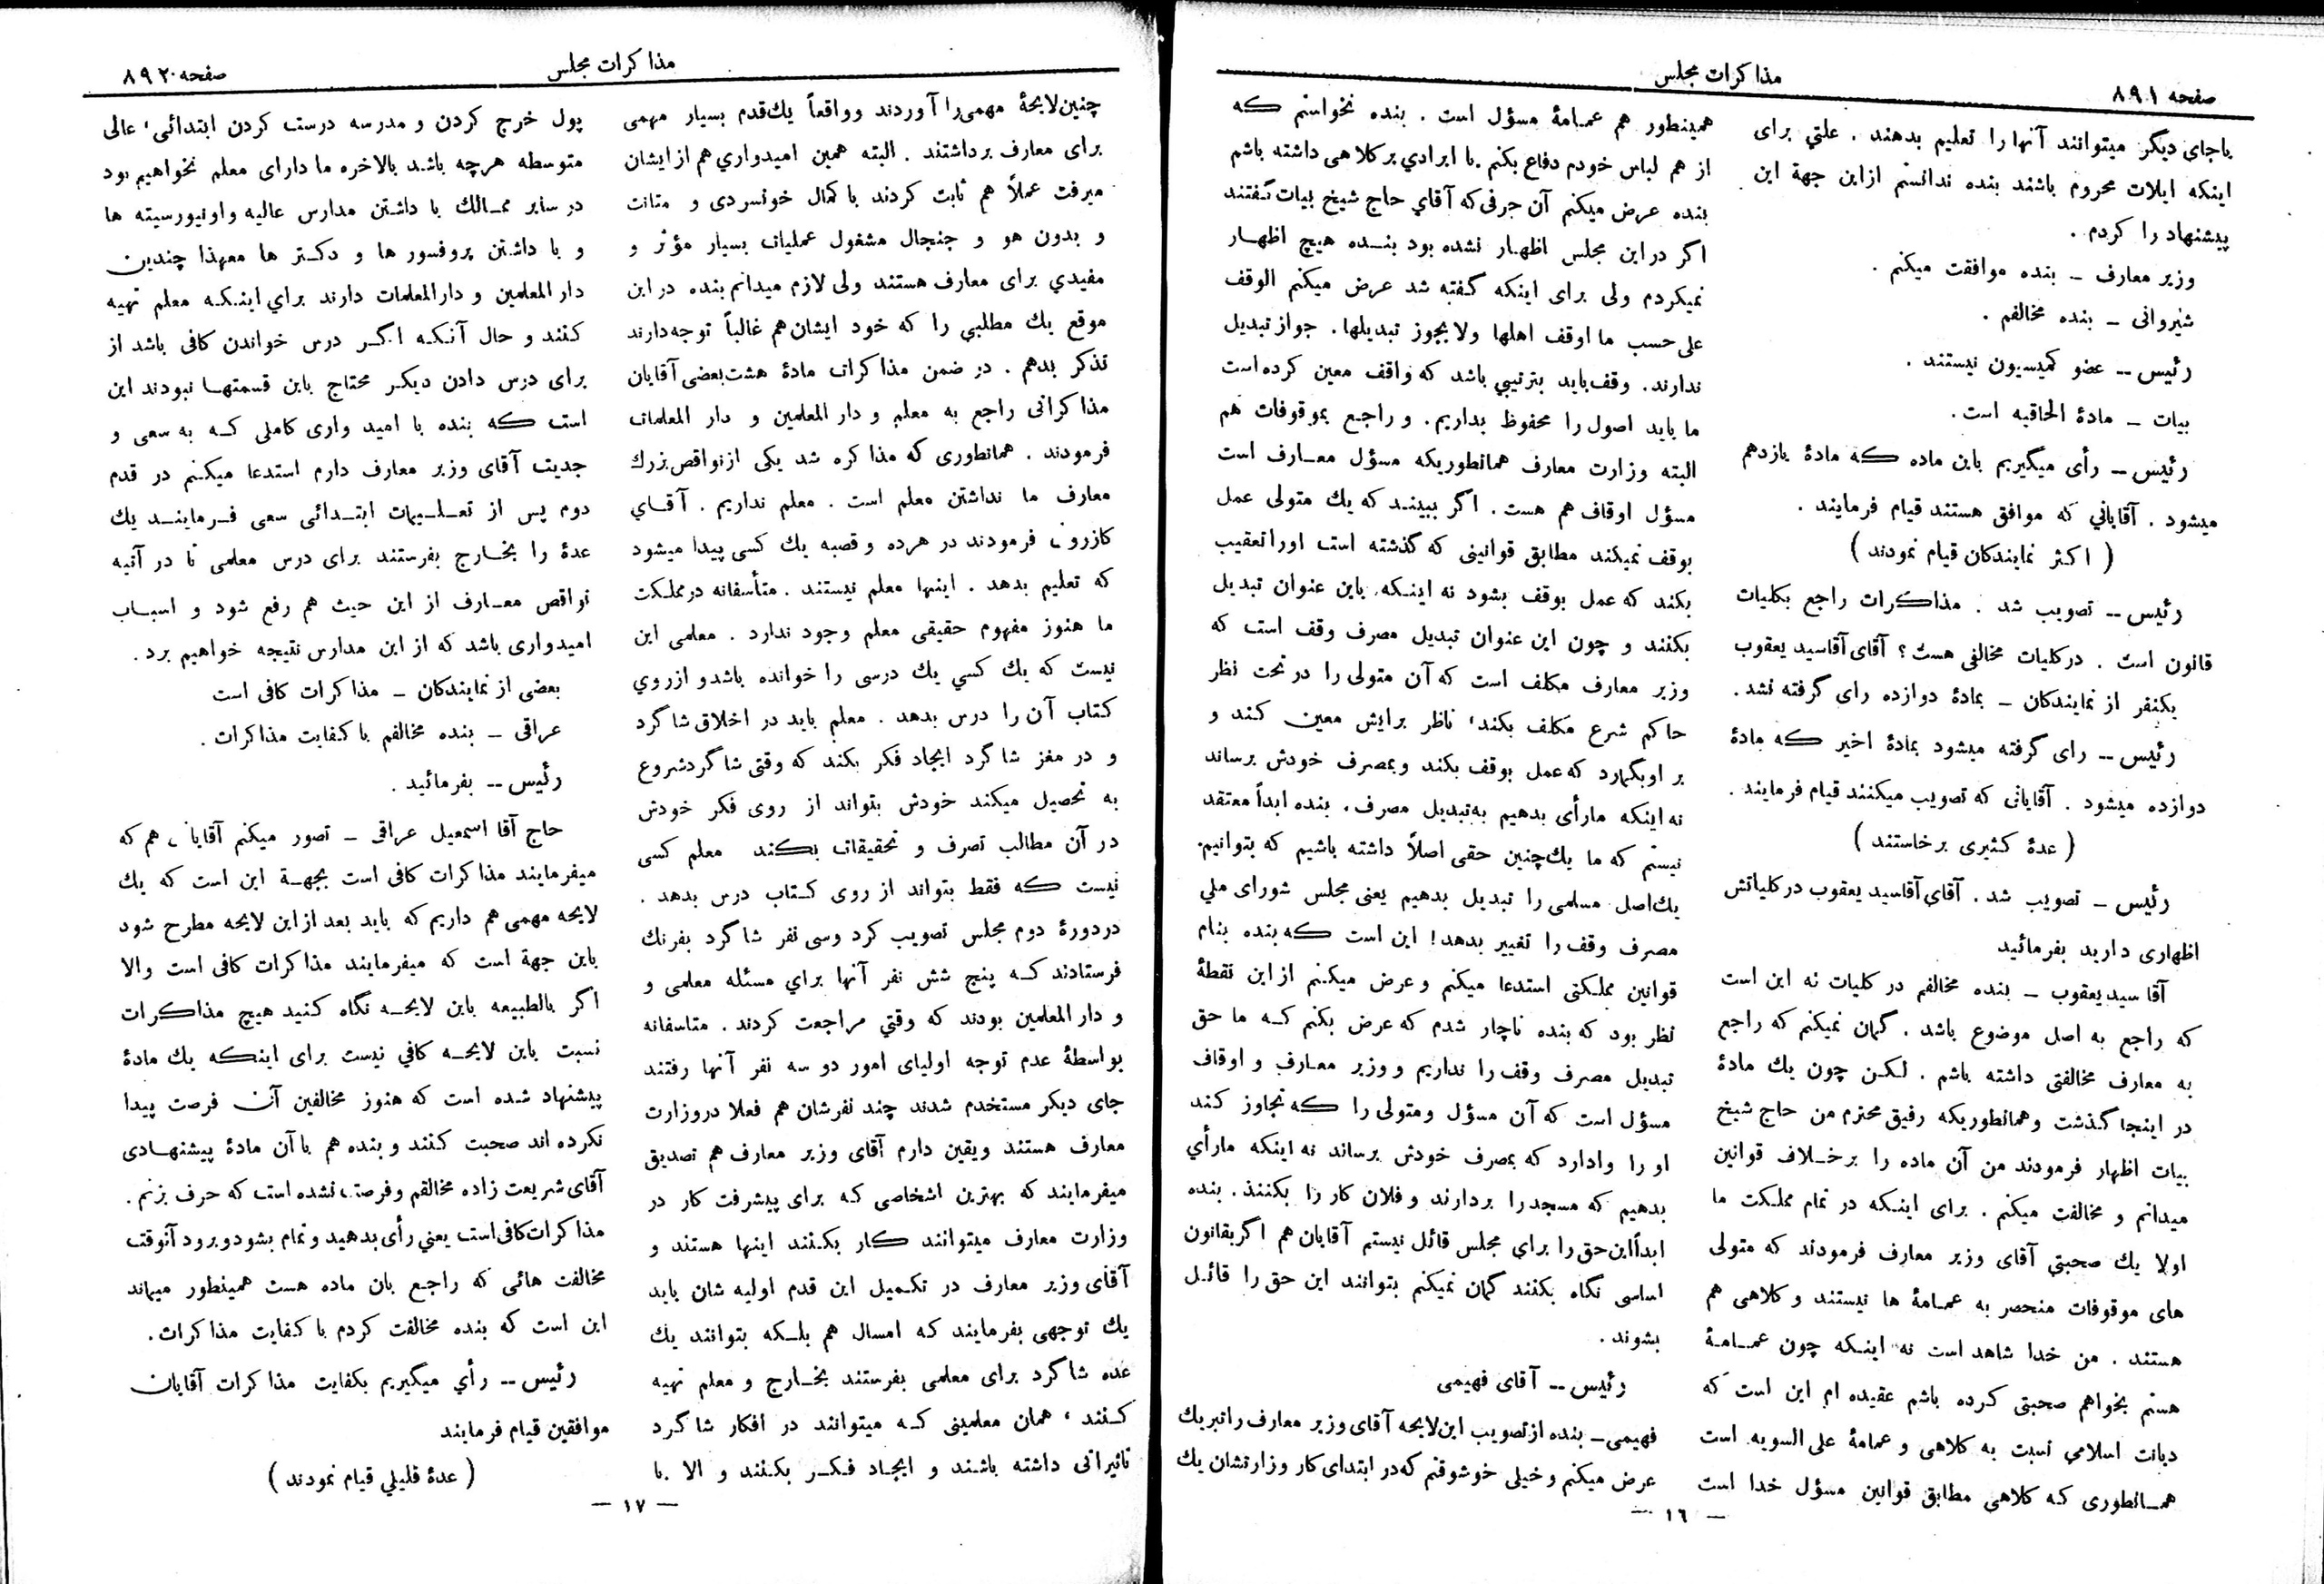 صفحه ۸۹۱
مذاکرات مجلس
یاجای دیگر میتوانند آنها را تعلیم بدهند . علتي برای
اینکه ایلات محروم باشند بنده ندانستم ازاین جهة این
پیشنهاد را کردم .
وزیر معارف ــ بنده موافقت میکنم .
شیروانی ــ بنده مخالفم .
رئیس ــ عضو کمیسیون نیستند .
بیات ــ مادۀ الحاقیه است .
رئیس ــ رأی میگیریم باین ماده که مادۀ یازدهم
میشود . آقایاني که موافق هستند قیام فرمایند .
( اکثر نمایندکان قیام نمودند )
رئیس ــ تصویب شد . مذاکرات راجع بکلیات
قانون است . درکلیات مخالفی هست ؟ آقای آقاسید یعقوب
یکنفر از نمایندکان ــ بمادۀ دوازده رای گرفته نشد .
رئیس ــ رای گرفته میشود بمادۀ اخیر که مادۀ
دوازده میشود . آقایانی که تصویب میکنند قیام فرمایند .
( عدۀ کثیری برخاستند )
رئیس ــ تصویب شد . آقای آقاسید یعقوب درکلیاتش
اظهاری دارید بفرمائید
آقا سید یعقوب ــ بنده مخالفم در کلیات نه این است
که راجع به اصل موضوع باشد . گمان نمیکنم که راجع
به معارف مخالفتی داشته باشم . لکن چون یك مادۀ
در اینجا گذشت وهمانطوریکه رفیق محترم من حاج شیخ
بیات اظهار فرمودند من آن ماده را برخلاف قوانین
میدانم و مخالفت میکنم . برای اینکه در تمام مملکت ما
اولا یك صحبتی آقای وزیر معارف فرمودند که متولی
های موقوفات منحصر به عمامۀ ها نیستند و کلاهی هم
هستند . من خدا شاهد است نه اینکه چون عمامۀ
هستم بخواهم صحبتی کرده باشم عقیده ام این است که
دیانت اسلامي نسبت به کلاهی و عمامۀ علی السویه است
همانطوری که کلاهی مطابق قوانین مسؤل خدا است
همینطور هم عمامۀ مسؤل است . بنده نخواستم که
از هم لباس خودم دفاع بکنم .با ایرادي بر کلاهی داشته باشم
بنده عرض میکنم آن حرفی که آقاي حاج شیخ بیات گفتند
اگر دراین مجلس اظهار نشده بود بنده هیچ اظهار
نمیکردم ولی برای اینکه گفته شد عرض میکنم الوقف
علی حسب ما اوقف اهلها ولا یجوز تبدیلها . جواز تبدیل
ندارند . وقف باید بترتیبي باشد که واقف معین کرده است
ما باید اصول را محفوظ بداریم . و راجع بموقوفات هم
البته وزارت معارف همانطوریکه مسؤل معارف است
مسؤل اوقاف هم هست . اگر ببیند که یك متولی عمل
بوقف نمیکند مطابق قوانینی که گذشته است اورا تعقیب
بکند که عمل بوقف بشود نه اینکه باین عنوان تبدیل
بکنند و چون این عنوان تبدیل مصرف وقف است که
وزیر معارف مکلف است که آن متولی را در تحت نظر
حاکم شرع مکلف بکند، ناظر برایش معین کند و
بر اوبگمارد که عمل بوقف بکند و بمصرف خودش برساند
نه اینکه مارأی بدهیم به تبدیل مصرف . بنده ابداً معتقد
نیستم که ما یك چنین حقی اصلاً داشته باشیم که بتوانیم
یك اصل مسلمی را تبدیل بدهیم یعنی مجلس شورای ملي
مصرف وقف را تغییر بدهد ! این است که بنده بنام
قوانین مملکتی استدعا میکنم و عرض میکنم از این نقطۀ
نظر بود که بنده ناچار شدم که عرض بکنم که ما حق
تبدیل مصرف وقف را نداریم و وزیر معارف و اوقاف
مسؤل است که آن مسؤل ومتولی را که تجاوز کند
او را وادارد که بمصرف خودش برساند نه اینکه مارأي
بدهیم که مسجد را بردارند و فلان کار را بکنند . بنده
ابداً این حق را براي مجلس قائل نیستم آقایان هم اگر بقانون
اساسی نگاه بکنند گمان نمیکنم بتوانند این حق را قائل
بشوند .
رئیس ــ آقای فهیمی
فهیمی ــ بنده از تصویب این لایحه آقای وزیر معارف را تبریك
عرض میکنم و خیلی خوشوقتم که در ابتدای کار وزارتشان یك
ــ ١٦ ــ
مذاکرات مجلس
صفحه ۸۹۲
چنین لایحۀ مهمی را آوردند وواقعاً یك قدم بسیار مهمی
برای معارف برداشتند . البته همین امیدواري هم از ایشان
میرفت عملاً هم ثابت کردند با کمال خونسردی و متانت
و بدون هو و جنجال مشغول عملیات بسیار مؤثر و
مفیدي برای معارف هستند ولی لازم میدانم بنده در این
موقع یك مطلبي را که خود ایشان هم غالباً توجه دارند
تذکر بدهم . در ضمن مذاکرات مادۀ هشت بعضی آقایان
مذاکراتی راجع به معلم و دار المعلمین و دار المعلمات
فرمودند . همانطوری که مذاکره شد یکی از نواقص بزرك
معارف ما نداشتن معلم است . معلم نداریم . آقاي
کازرونی فرمودند در هرده و قصبه یك کسی پیدا میشود
که تعلیم بدهد . اینها معلم نیستند . متأسفانه درمملکت
ما هنوز مفهوم حقیقی معلم وجود ندارد . معلمی این
نیست که یك کسي یك درسی را خوانده باشد و از روي
کتاب آن را درس بدهد . معلم باید در اخلاق شاگرد
و در مغز شاگرد ایجاد فکر بکند که وقتی شاگرد شروع
به تحصیل میکند خودش بتواند از روی فکر خودش
در آن مطالب تصرف و تحقیقات بکند معلم کسی
نیست که فقط بتواند از روی کتاب درس بدهد .
دردورۀ دوم مجلس تصویب کرد وسی نفر شاگرد بفرنك
فرستادند که پنج شش نفر آنها براي مسئله معلمی و
و دار المعلمین بودند که وقتي مراجعت کردند . متاسفانه
بواسطۀ عدم توجه اولیای امور دو سه نفر آنها رفتند
جای دیکر مستخدم شدند چند نفرشان هم فعلا در وزارت
معارف هستند ویقین دارم آقای وزیر معارف هم تصدیق
میفرمایند که بهترین اشخاصی که برای پیشرفت کار در
وزارت معارف میتوانند کار بکنند اینها هستند و
آقای وزیر معارف در تکمیل این قدم اولیه شان باید
یك توجهی بفرمایند که امسال هم بلکه بتوانند یك
عده شاگرد برای معلمی بفرستند بخارج و معلم تهیه
کنند ، همان معلمینی که میتوانند در افکار شاگرد
تاثیراتی داشته باشند و ایجاد فکر بکنند و الا با
پول خرج کردن و مدرسه درست کردن ابتدائی، عالی
متوسطه هرچه باشد بالاخره ما دارای معلم نخواهیم بود
در سایر ممالك با داشتن مدارس عالیه و اونیورسیته ها
و با داشتن پروفسور ها و دکتر ها معهذا چندین
دار المعلمین و دار المعلمات دارند براي اینکه معلم تهیه
کنند و حال آنکه اگر درس خواندن کافی باشد از
برای درس دادن دیکر محتاج باین قسمتها نبودند این
است که بنده با امید واری کاملی که به سعی و
جدیت آقای وزیر معارف دارم استدعا میکنم در قدم
دوم پس از تعلیمات ابتدائی سعی فرمایند یك
عدۀ را بخارج بفرستند برای درس معلمی تا در آتیه
نواقص معارف از این حیث هم رفع شود و اسباب
امیدواری باشد که از این مدارس نتیجه خواهیم برد .
بعضی از نمایندکان ــ مذاکرات کافی است
عراقی ــ بنده مخالفم با کفایت مذاکرات .
رئیس ــ بفرمائید .
حاج آقا اسمعیل عراقی ــ تصور میکنم آقایانی هم که
میفرمایند مذاکرات کافی است بجهة این است که یك
لایحه مهمی هم داریم که باید بعد از این لایحه مطرح شود
باین جهة است که میفرمایند مذاکرات کافی است والا
اگر بالطبیعه باین لایحه نگاه کنید هیچ مذاکرات
نسبت باین لایحه کافي نیست برای اینکه یك مادۀ
پیشنهاد شده است که هنوز مخالفین آن فرصت پیدا
نکرده اند صحبت کنند و بنده هم با آن مادۀ پیشنهادی
آقای شریعت زاده مخالفم وفرصتی نشده است که حرف بزنم .
مذاکرات کافی است یعني رأی بدهید و تمام بشود و برود آنوقت
مخالفت هائی که راجع بان ماده هست همینطور میماند
این است که بنده مخالفت کردم با کفایت مذاکرات .
رئیس ــ رأي میگیریم بکفایت مذاکرات آقایان
موافقین قیام فرمایند
( عدۀ قلیلي قیام نمودند )
ــ ١٧ ــ